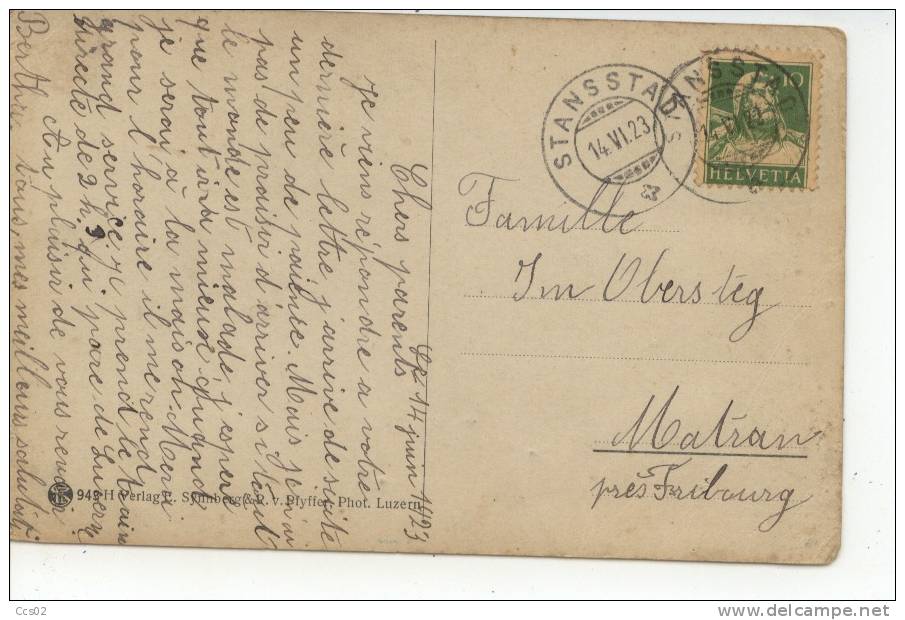 Le 14 juin 1923
Chers parents
Je viens répondre a votre
dernière lettre, j'arrive de suite
un peu de patience. Mais je n'ai
pas de plaisir d'arriver si tout
le monde est malade, j'esper
que tout ira mieux quand
je serai à la maison. Merci
pour l'horaire il me rend
grand service, je prend le train
directe de 2 h. qui pare de Luzerne
Au plaisir de vous revoir
tous, mes meilleurs saluts
Berthe.
STANSSTAD
14.VI.23
STANSSTAD
10
HELVETIA
Famille
Im Obersteg
Matran
près Fribourg
949 H Verlag E. Synnberg & R. v. Pfyffer, Phot. Luzern
Ccs02
delcampe.net